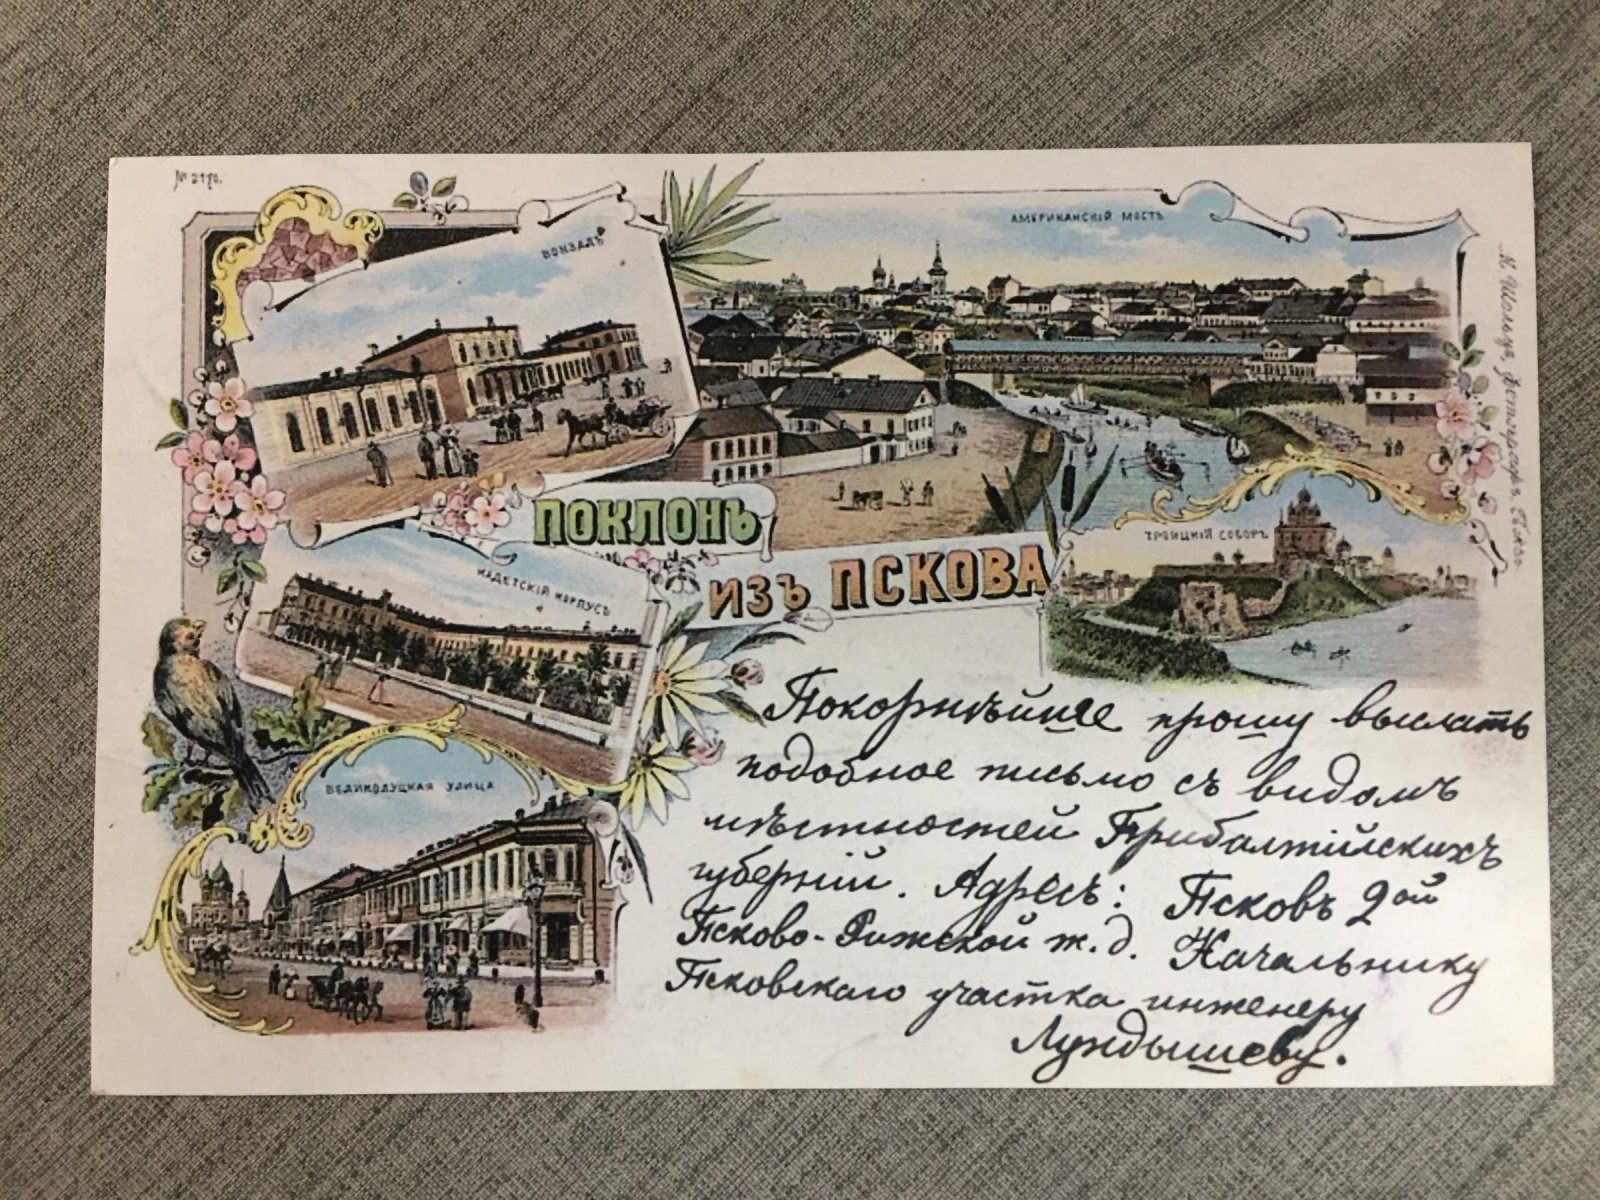 ВОКЗАЛЪ
АМЕРИКАНСКІЙ МОСТЪ
ПОКЛОНЪ
ИЗЪ ПСКОВА
ТРОИЦКІЙ СОБОРЪ
КАДЕТСКІЙ КОРПУСЪ
ВЕЛИКОЛУЦКАЯ УЛИЦА
Покорнѣйше прошу выслать
подобное письмо съ видомъ
мѣстностей Прибалтійскихъ
губерній. Адресъ: Псковъ 2ой
Псково-Рижской ж. д. Начальнику
Псковскаго участка инженеру
Лундышеву.